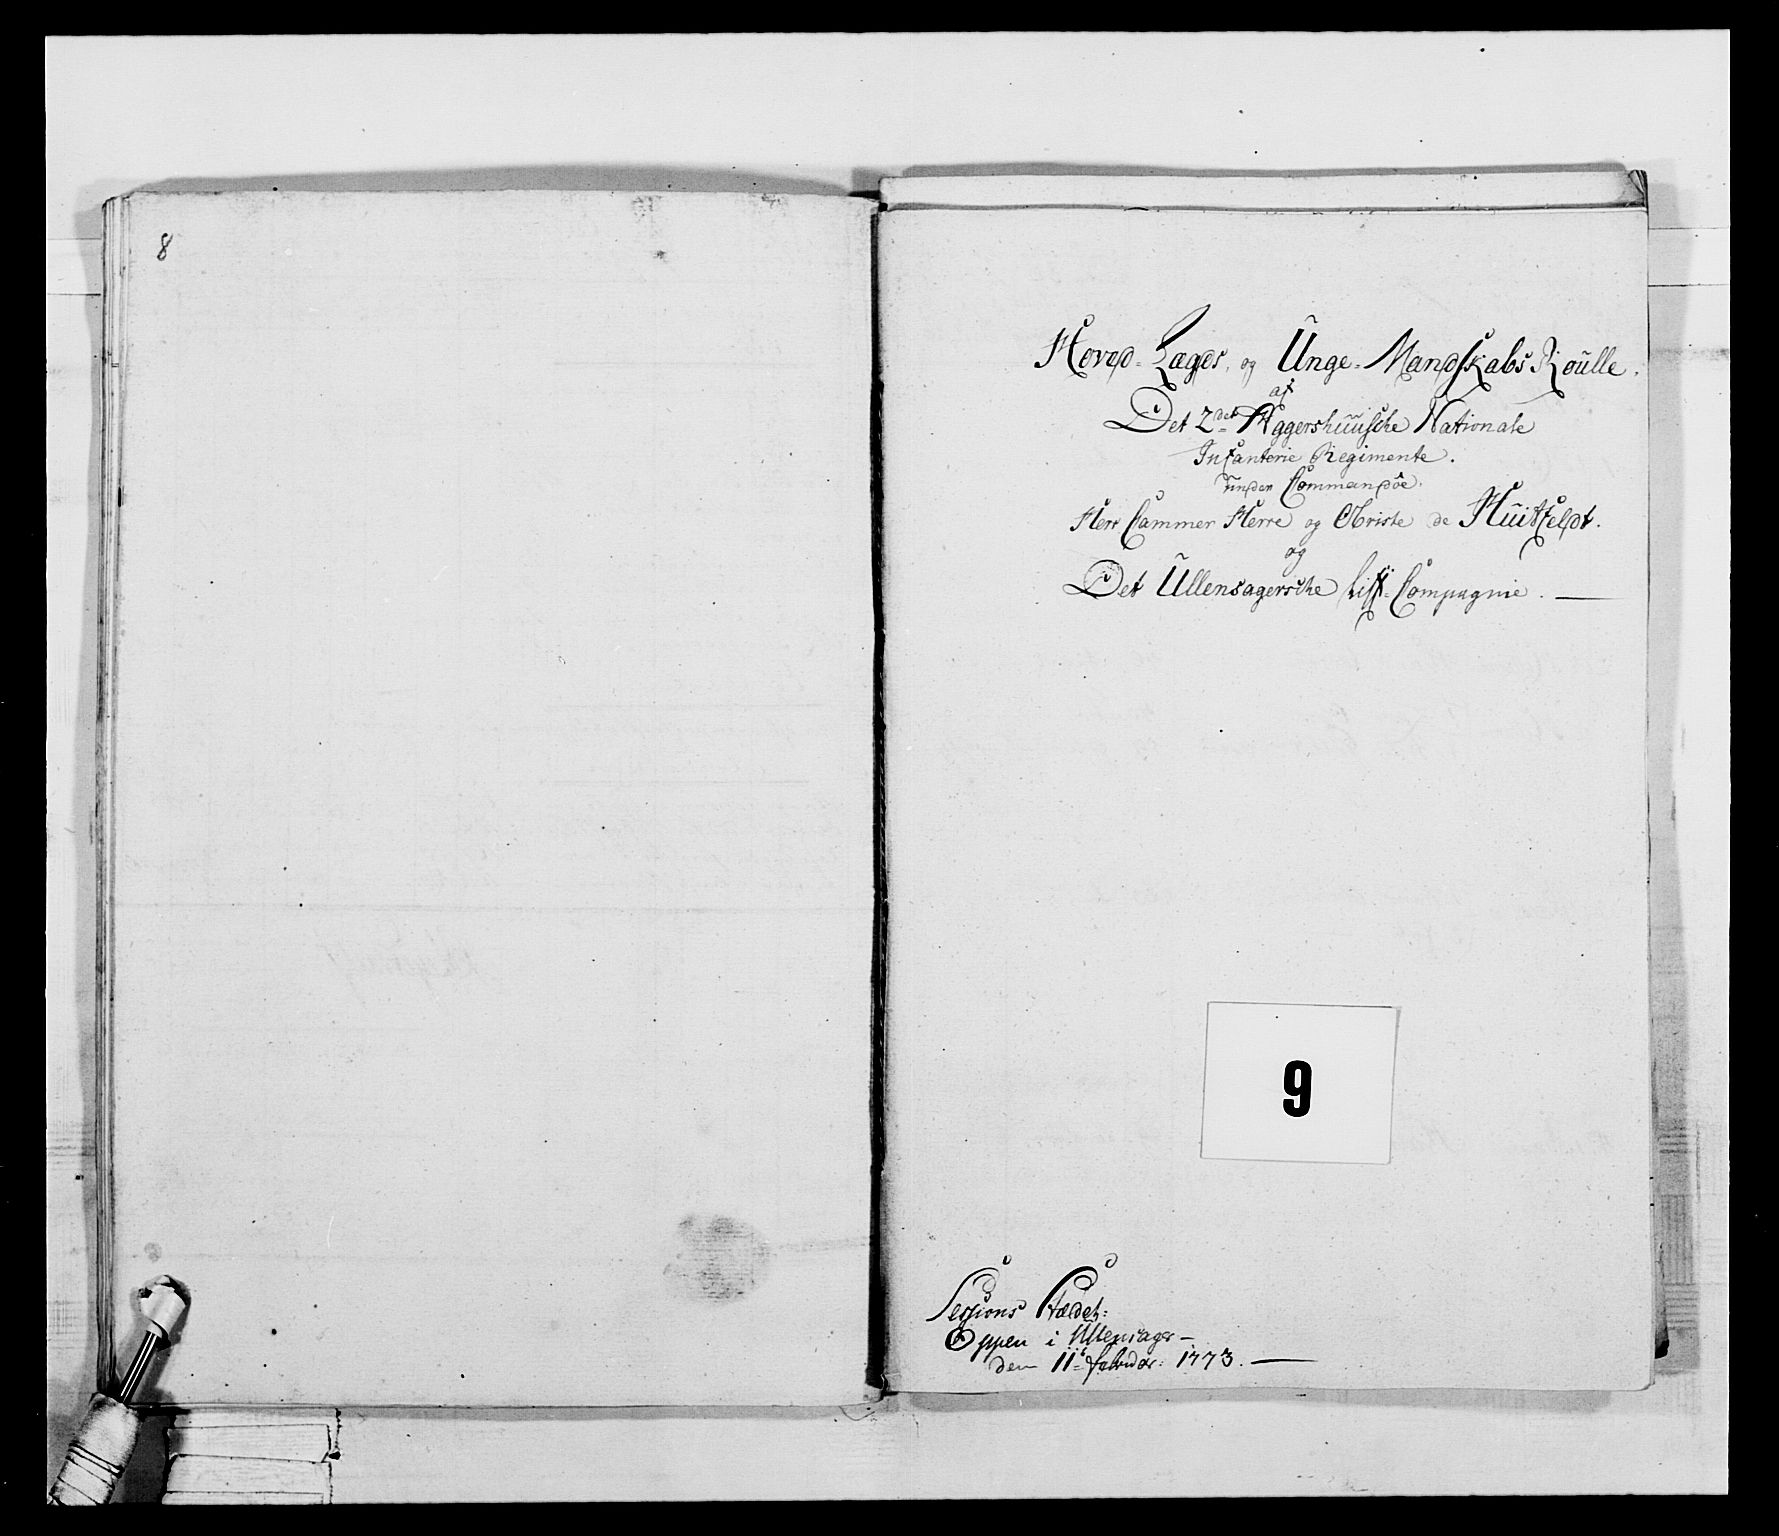 8
Hoved-Lægds, og Unge-Mandskabs Roulle.
af
Det 2det Aggershuusche Nationale
Infanterie Regimente.
under Commandoe.
Herr Cammer Herre og Obriste de Huitfeldt.
og
Det Ullensagersche Liff-Compagnie.
9
Sessions Stædet:
Eppen i Ullensager-
den 11te februar: 1773.